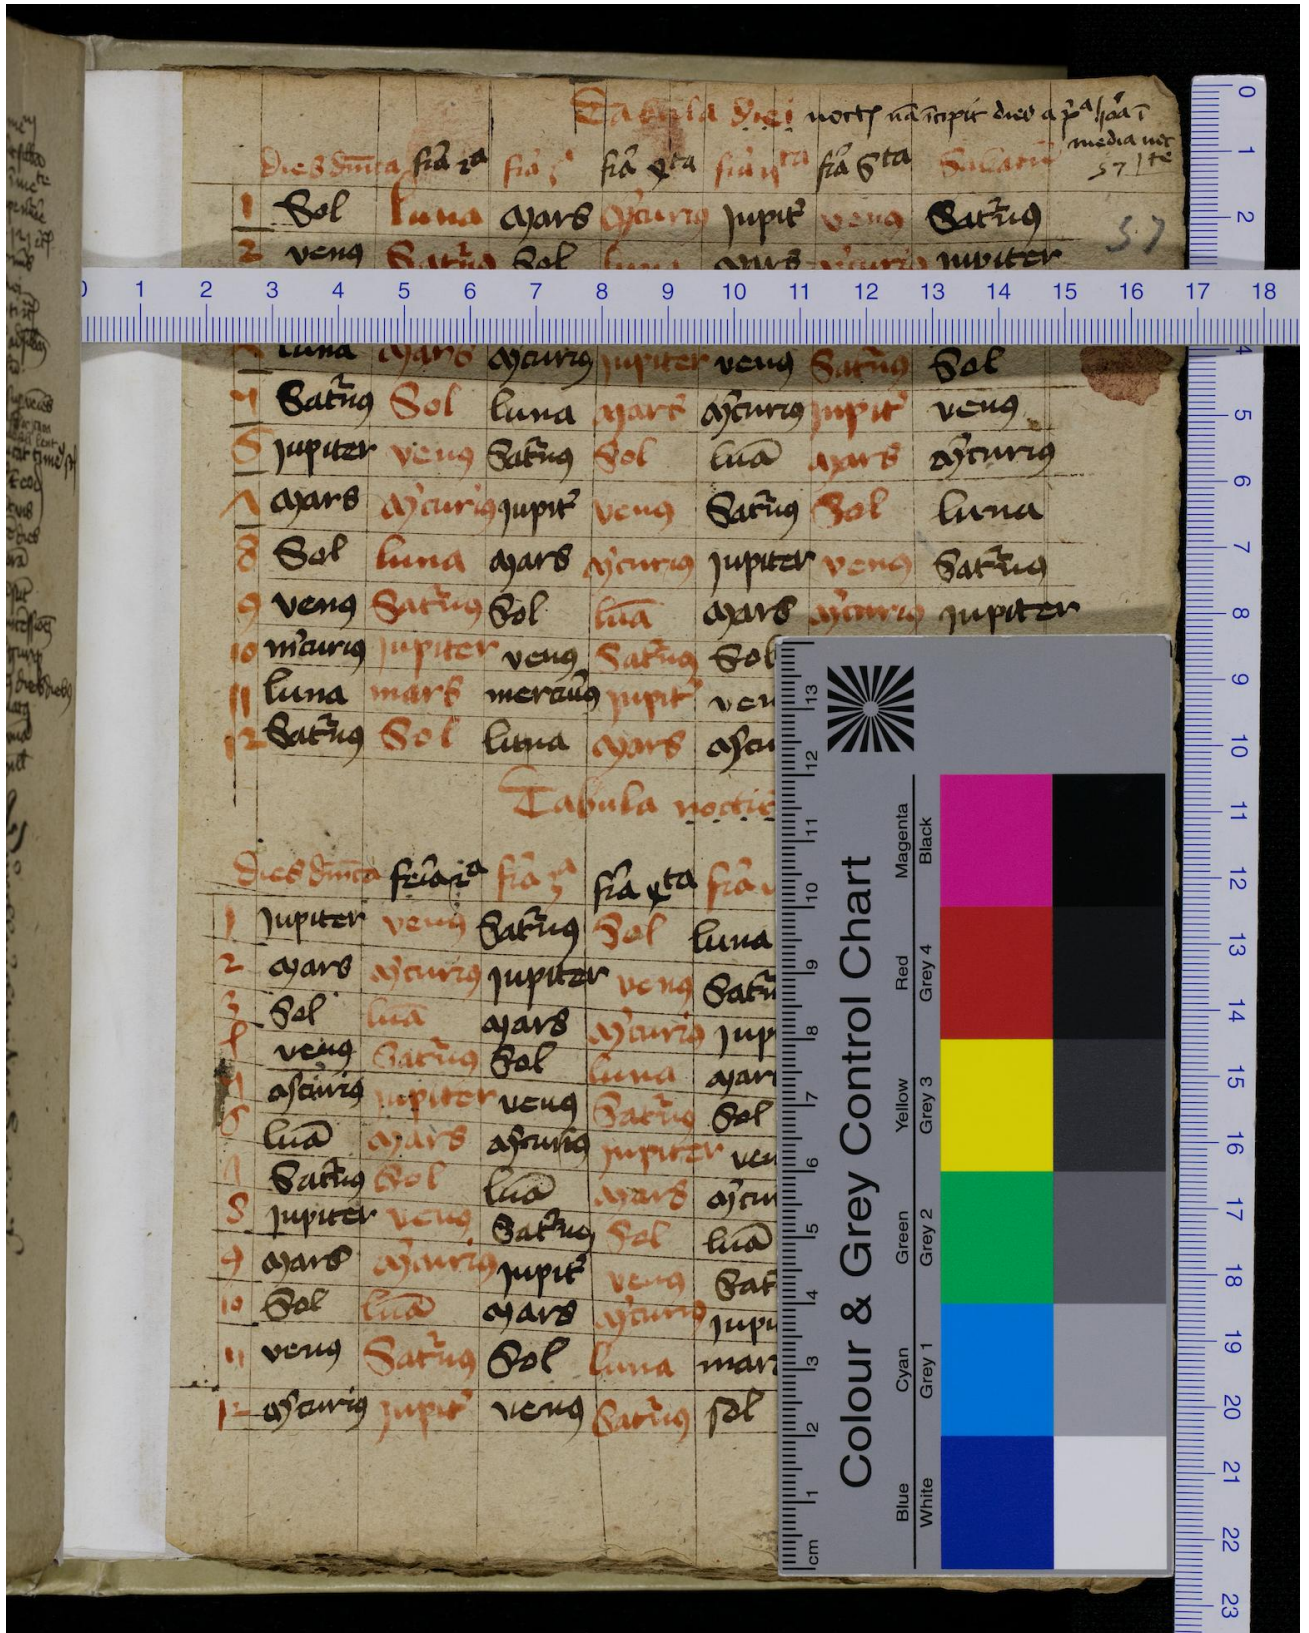 Tabula diei noctʒ nā īcipit dies a pͣ hōa ī
media noc
57 te
dies dn̄ica fr̄ia 2ᵃ fr̄ia 3ᵃ fr̄ia 4ta fr̄ia 5ta fr̄ia 6ta Sabatū
57
1 Sol luna Mars M̄curiꝰ Jupit̄ venꝰ Sat̄nꝰ
2 venꝰ Sat̄nꝰ Sol luna Mars M̄curiꝰ Jupiter
luna Mars M̄curiꝰ Jupiter venꝰ Sat̄nꝰ Sol
Sat̄nꝰ Sol luna Mars M̄curiꝰ Jupit̄ venꝰ
6 Jupiter venꝰ Sat̄nꝰ Sol luā Mars M̄curiꝰ
7 Mars M̄curiꝰ Jupit̄ venꝰ Sat̄nꝰ Sol luna
8 Sol luna Mars M̄curiꝰ Jupiter venꝰ Sat̄nꝰ
9 venꝰ Sat̄nꝰ Sol luā Mars M̄curiꝰ Jupiter
10 m̄curiꝰ Jupiter venꝰ Sat̄nꝰ Sol
11 luna mars mercūꝰ Jupit̄ ven
12 Sat̄nꝰ Sol luna Mars M̄cu
Tabula noctis
dies dn̄ica feria 2ᵃ fr̄ia 3ᵃ fr̄ia 4ta fr̄ia
1 Jupiter venꝰ Sat̄nꝰ Sol luna
2 Mars M̄curiꝰ Jupiter venꝰ Sat̄n
3 Sol luā Mars M̄curiꝰ Jup
4 venꝰ Sat̄nꝰ Sol luna Mar
5 M̄curiꝰ Jupiter venꝰ Sat̄nꝰ Sol
6 luā Mars M̄curiꝰ Jupiter ven
7 Sat̄nꝰ Sol luā Mars M̄cur
8 Jupiter venꝰ Sat̄nꝰ Sol luā
9 Mars M̄curiꝰ Jupit̄ venꝰ Sat̄
10 Sol luā Mars M̄curiꝰ Jupi
11 venꝰ Sat̄nꝰ Sol luna mar
12 M̄curiꝰ Jupit̄ venꝰ Sat̄nꝰ sol
0 1 2 3 4 5 6 7 8 9 10 11 12 13 14 15 16 17 18
0 1 2 4 5 6 7 8 9 10 11 12 13 14 15 16 17 18 19 20 21 22 23
Colour & Grey Control Chart
cm 1 2 3 4 5 6 7 8 9 10 11 12 13
Blue Cyan Green Yellow Red Magenta
White Grey 1 Grey 2 Grey 3 Grey 4 Black